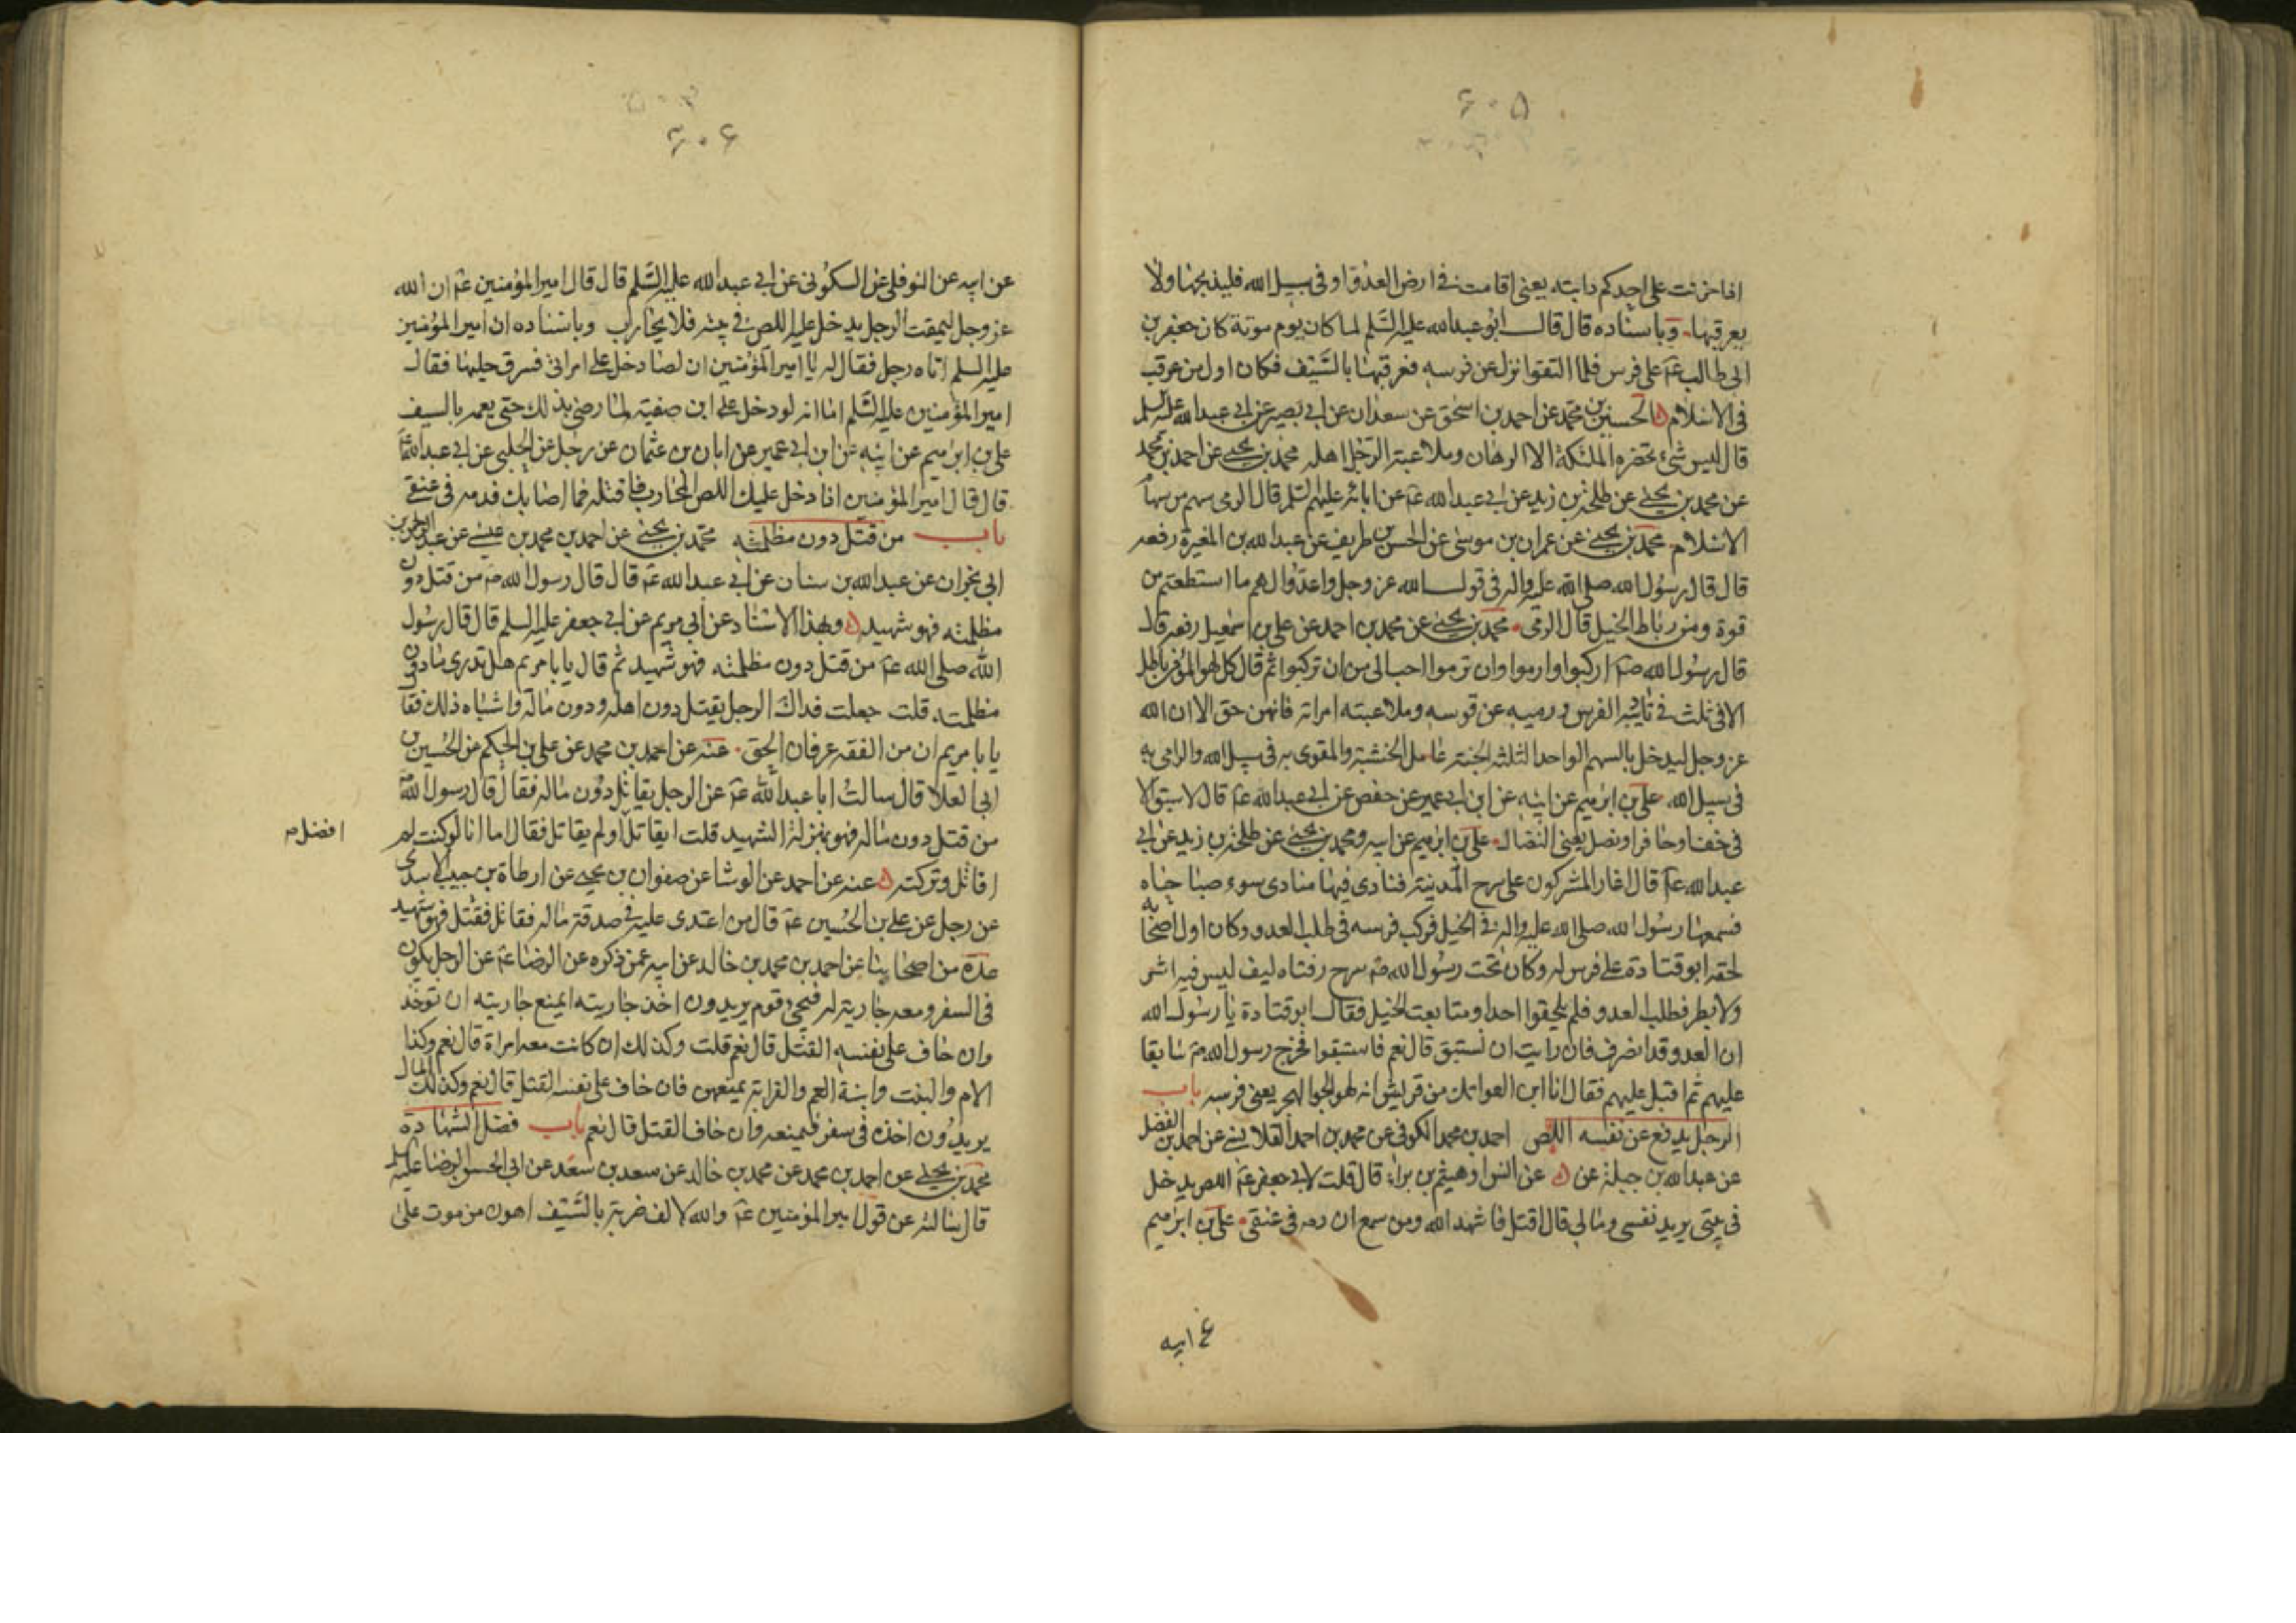 ۶۰۵
اذا حزنت على احدكم دابته يعنى اقامت فى ارض العدو او فى سبيل الله فليذبحها ولا
يعرقبها وباسناده قال قال ابو عبدالله عليه السلم لما كان يوم موتة كان جعفر بن
ابى طالب عم على فرس فلما التقوا نزل عن فرسه فعرقبها بالسيف فكان اول من عرقب
فى الاسلام الحسين بن محمد عن احمد بن اسحق عن سعدان عن ابى بصير عن ابى عبدالله عليه السلم
قال ليس شئ تحضره الملئكة الا الرهان وملاعبة الرجل اهله محمد بن يحيى عن احمد بن محمد
عن محمد بن يحيى عن طلحة بن زيد عن ابى عبدالله عم عن ابائه عليهم السلم قال الرمى سهم من سهام
الاسلام محمد بن يحيى عن عمران بن موسى عن الحسن بن طريف عن عبدالله بن المغيرة رفعه
قال قال رسول الله صلى الله عليه واله فى قول الله عز وجل واعدوا لهم ما استطعتم من
قوة ومن رباط الخيل قال الرمى محمد بن يحيى عن محمد بن احمد عن على بن اسمعيل رفعه قال
قال رسول الله صم اركبوا وارموا وان ترموا احب الى من ان تركبوا ثم قال كل لهو المؤمن باطل
الا فى ثلث فى تاديبه الفرس ورميه عن قوسه وملاعبته امراته فانهن حق الا ان الله
عز وجل ليدخل بالسهم الواحد الثلثة الجنة عامل الخشبة والمقوى به فى سبيل الله والرامى به
فى سبيل الله على بن ابرهيم عن ابيه عن ابن ابى عمير عن حفص عن ابى عبدالله عم قال لا سبق الا
فى خف او حافر او نصل يعنى النضال على بن ابرهيم عن ابيه ومحمد بن يحيى عن طلحة بن زيد عن ابى
عبدالله عم قال اغار المشركون على سرح المدينة فنادى فيها منادى سوء صباحاه
فسمعها رسول الله صلى الله عليه واله فى الخيل فركب فرسه فى طلب العدو وكان اول اصحابه
لحقه ابو قتادة على فرس له وكان تحت رسول الله صم سرح رفتاه ليف ليس فيه اشر
ولا بطر فطلب العدو فلم يلحقوا احدا ومتابعت الخيل فقال ابو قتادة يا رسول الله
ان العدو قد انصرف فان رايت ان نستبق قال نعم فاستبقوا فخرج رسول الله صم سابقا
عليهم ثم اقبل عليهم فقال انا ابن العواتك من قريش انه لهو الجواد البحر يعنى فرسه باب
الرجل يدفع عن نفسه اللص احمد بن محمد الكوفى عن محمد بن احمد القلانسى عن احمد بن الفضل
عن عبدالله بن جبلة عن عن هيثم بن براء قال قلت لابى جعفر عم اللص يدخل
فى بيتى يريد نفسى ومالى قال اقتل فاشهد الله ومن سمع ان دمه فى عنقى على بن ابرهيم
عن ابيه
۶۰۶
عن ابيه عن النوفلى عن السكونى عن ابى عبدالله عليه السلم قال قال امير المؤمنين عم ان الله
عز وجل ليمقت الرجل يدخل عليه اللص فى بيته فلا يحارب وباسناده ان امير المؤمنين
عليه السلم اتاه رجل فقال له يا امير المؤمنين ان لصا دخل على امراتى فسرق حليها فقال
امير المؤمنين عليه السلم اما انه لو دخل على ابن صفية لما رضى بذلك حتى يعمه بالسيف
على بن ابرهيم عن ابيه عن ابن ابى عمير عن ابان بن عثمان عن رجل عن الحلبى عن ابى عبدالله عم
قال قال امير المؤمنين اذا دخل عليك اللص المحارب فاقتله فما اصابك فدمه فى عنقى
باب من قتل دون مظلمته محمد بن يحيى عن احمد بن محمد بن عيسى عن عبدالرحمن بن
ابى نجران عن عبدالله بن سنان عن ابى عبدالله عم قال قال رسول الله صم من قتل دون
مظلمته فهو شهيد وبهذا الاسناد عن ابى مريم عن ابى جعفر عليه السلم قال قال رسول
الله صلى الله عم من قتل دون مظلمته فهو شهيد ثم قال يا با مريم هل تدرى ما دون
مظلمته قلت جعلت فداك الرجل يقتل دون اهله ودون ماله واشباه ذلك فقال
يا با مريم ان من الفقه عرفان الحق عنه عن احمد بن محمد عن على بن الحكم عن الحسين بن
ابى العلا قال سالت ابا عبدالله عم عن الرجل يقاتل دون ماله فقال قال رسول الله صم
من قتل دون ماله فهو بمنزلة الشهيد قلت ايقاتل او لم يقاتل فقال اما انا لو كنت لم
افضل م
اقاتل وتركته عنه عن احمد عن الوشا عن صفوان بن يحيى عن ارطاة بن حبيب الاسدى
عن رجل عن على بن الحسين عم قال من اعتدى عليه فى صدقة ماله فقاتل فقتل فهو شهيد
عدة من اصحابنا عن احمد بن محمد بن خالد عن ابيه عمن ذكره عن الرضا عم عن الرجل يكون
فى السفر ومعه جارية له فيجئ قوم يريدون اخذ جاريته ايمنع جاريته ان توخذ
وان خاف على نفسه القتل قال نعم قلت وكذلك ان كانت معه امراة قال نعم وكذا
الام والبنت وابنة العم والقرابة يمنعهن فان خاف على نفسه القتل قال نعم وكذلك المال
يريدون اخذه فى سفر فيمنعه وان خاف القتل قال نعم باب فضل الشهادة
محمد بن يحيى عن احمد بن محمد عن محمد بن خالد عن سعد بن سعد عن ابى الحسن الرضا عليه السلم
قال سالته عن قول امير المؤمنين عم والله لالف ضربة بالسيف اهون من موت على